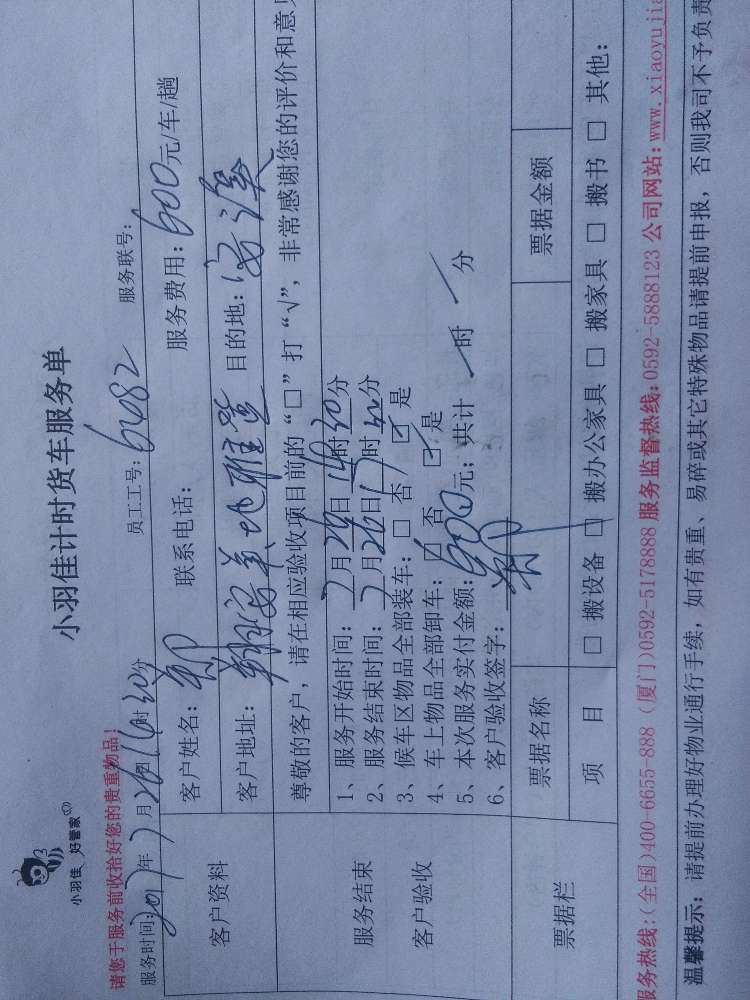 小羽佳 好管家
小羽佳计时货车服务单
请您于服务前收拾好您的贵重物品！
服务时间：2017年7月26日16时30分 员工工号：6482 服务联号：
客户资料
客户姓名：郑 联系电话： 服务费用：600元/车/趟
客户地址：翔安美地雅登 目的地：安溪
尊敬的客户，请在相应验收项目前的“□”打“√”，非常感谢您的评价和意见
服务结束
客户验收
1、服务开始时间：7月26日14时30分
2、服务结束时间：7月26日17时 分
3、候车区物品全部装车：□ 否 ☑ 是
4、车上物品全部卸车：□ 否 ☑ 是
5、本次服务实付金额：600元；共计 时 分
6、客户验收签字：郑
票据栏
票据名称 票据金额
项 目 □ 搬设备 □ 搬办公家具 □ 搬家具 □ 搬书 □ 其他：
服务热线：(全国)400-6655-888 (厦门)0592-5178888 服务监督热线：0592-5888123 公司网站：www.xiaoyujia
温馨提示：请提前办理好物业通行手续，如有贵重、易碎或其它特殊物品请提前申报，否则我司不予负责